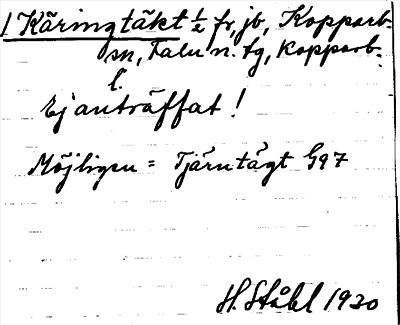 1 Käringtäkt ½ fr, jb, Kopparb-
sn, Falu n. tg, Kopparb-
l.
Ej anträffat!
Möjligen = Tjärntägt 597
H. Ståhl 1930